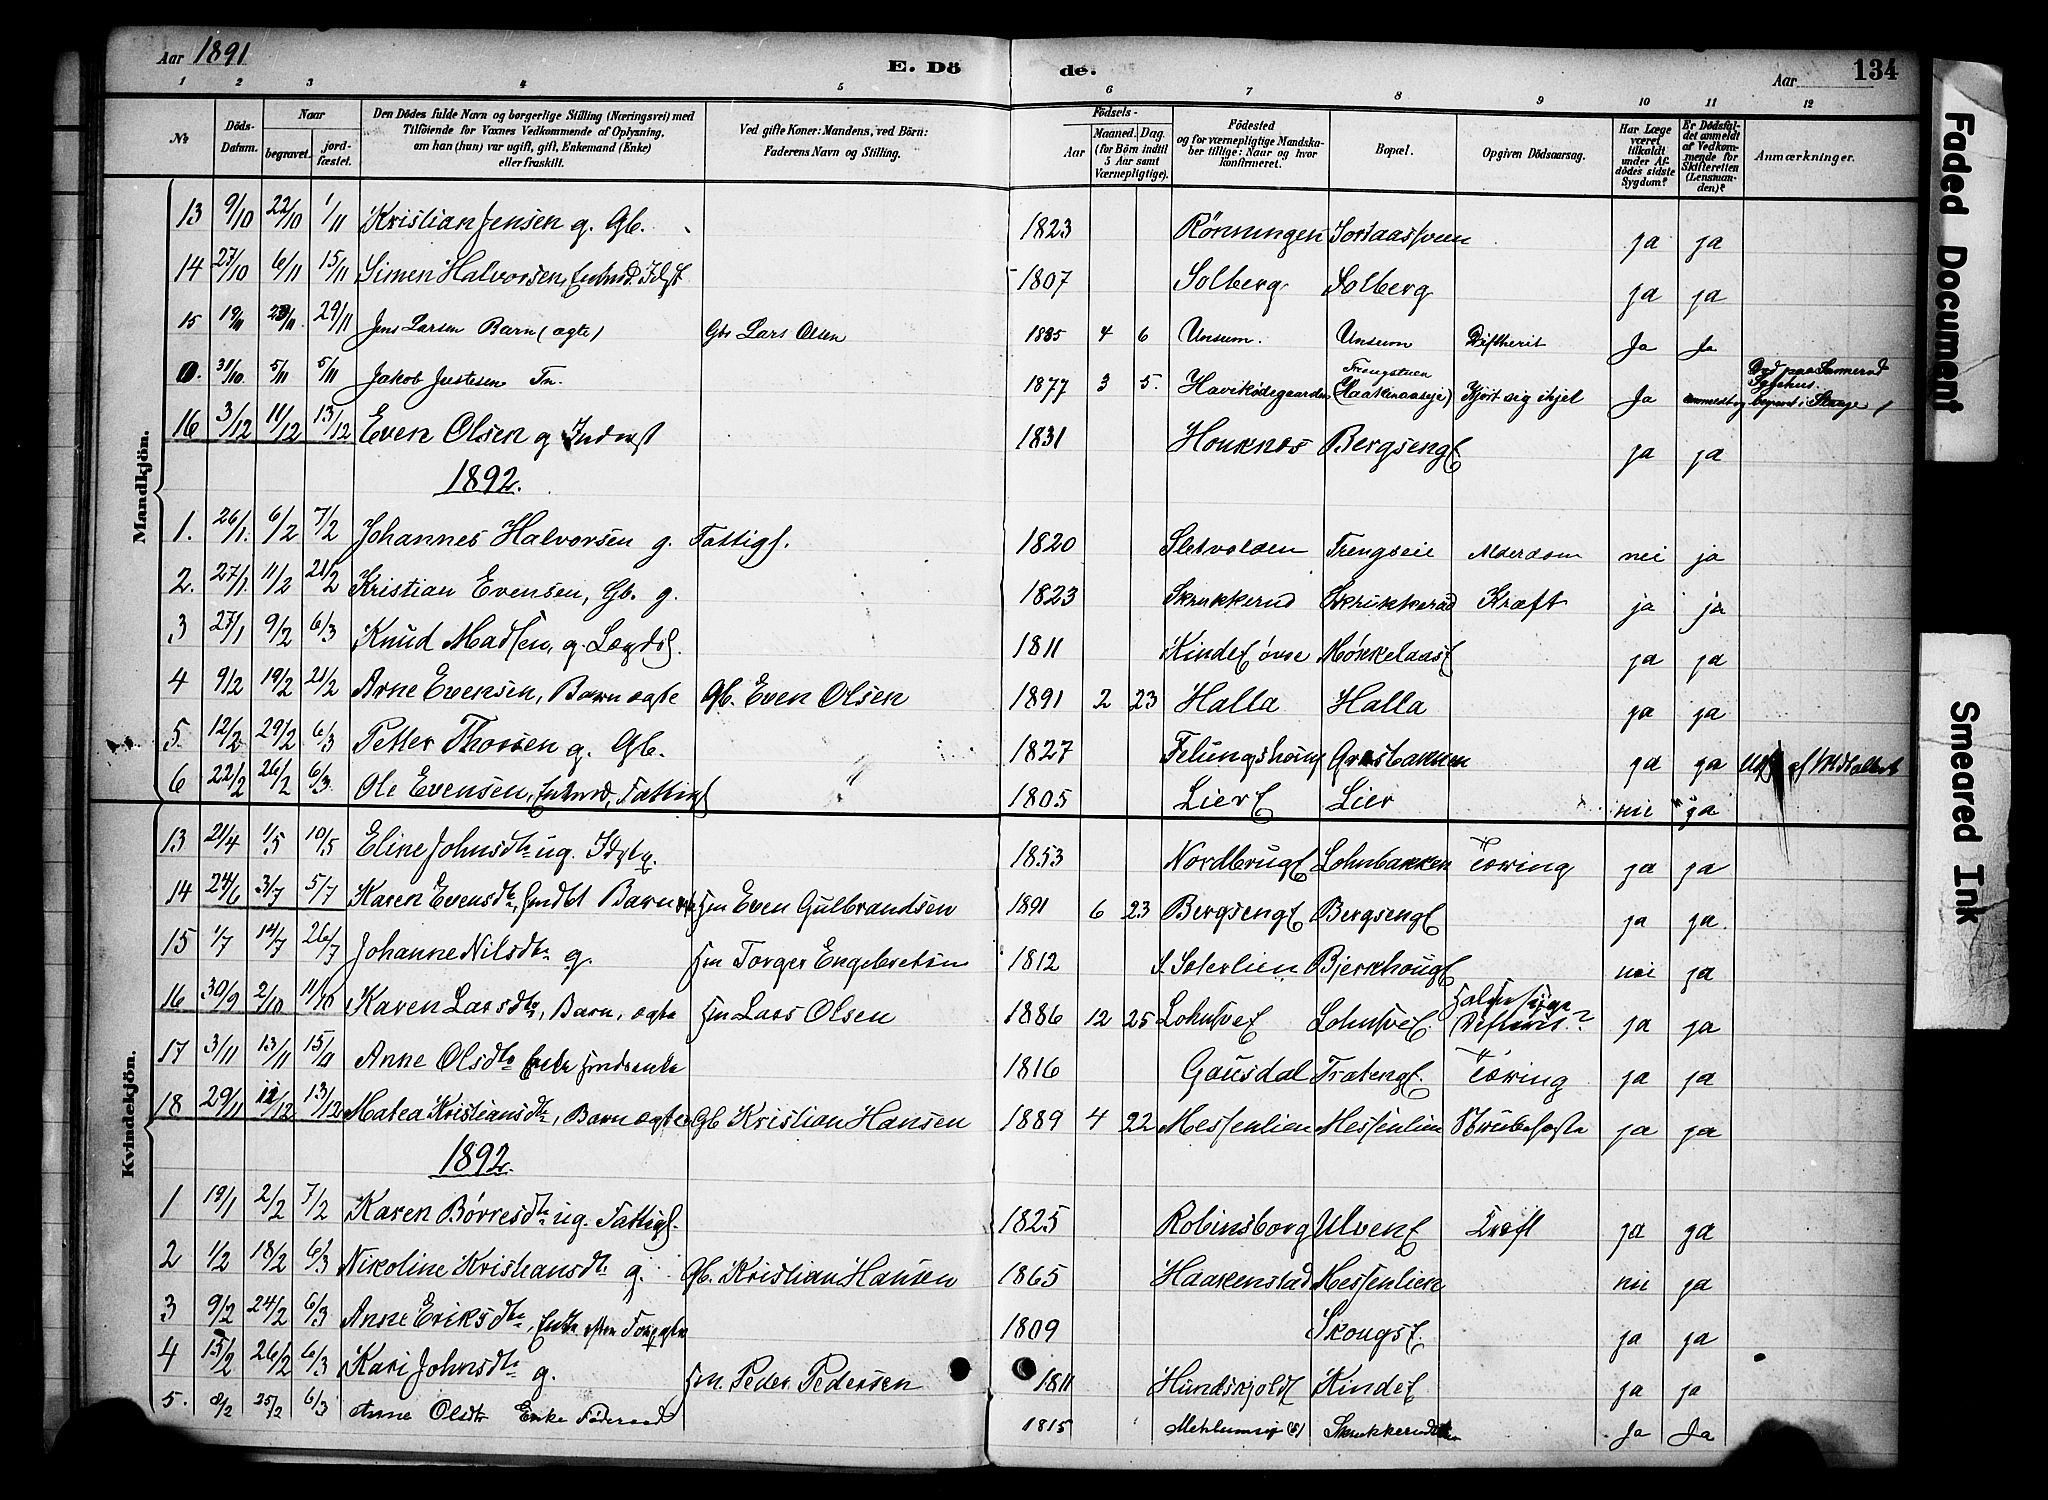 Aar 1891
E. Dö de.
Aar
134
1 2 3 4 5 6 7 8 9 10 11 12
No
Döds-Datum.
Naar
begravet.
jord-fæstet.
Den Dödes fulde Navn og borgerlige Stilling (Næringsvei) med
Tilföiende for Voxnes Vedkommende af Oplysning,
om han (hun) var ugift, gift, Enkemand (Enke)
eller fraskilt.
Ved gifte Koner: Mandens, ved Börn:
Faderens Navn og Stilling.
Födsels-
Aar
Maaned. Dag.
(for Börn indtil
5 Aar samt
Værnepligtige).
Födested
og for værnepligtige Mandska-
ber tillige: Naar og hvor
konfirmeret.
Bopæl.
Opgiven Dödsaarsag.
Har Læge
været
tilkaldt
under Af-
dödes sidste
Sygdom?
Er Dödsfal-
det anmeldt
af Vedkom-
mende for
Skifteretten
(Lensman-
den)?
Anmærkninger.
Mandkjön.
13 9/10 22/10 1/11 Kristian Jensen g. Gb. 1823 Rönningen ja ja
14 27/10 6/11 15/11 Simen Halvorsen, 1807 Solberg Solberg ja ja
15 19/11 29/11 Jens Larsen Barn (ægte) Gbr Lars Olsen 1885 4 6 Unsum. Unsum Diftherit Ja Ja
0. 31/10 5/11 5/11 Jakob Justesen 1877 3 5. Kjört sig ihjel Ja
16 3/12 11/12 13/12 Even Olsen g Inderst 1831 Houknes Bergsengf ja ja
1892.
1. 26/1. 6/2 7/2 Johannes Halvorsen g. Fattigl. 1820 Sletvolden Trengseie Alderdom nei ja
2. 27/1. 11/2 21/2 Kristian Evensen, Gb. g. 1823 Skrukkerud Skrukkerud Kræft ja ja
3 27/1 9/2 6/3 Knud Madsen, g. Lægdsl. 1811 Kindef övre ja ja
4 9/2 19/2 21/2 Arne Evensen, Barn ægte Gb. Even Olsen 1891 2 23 Halla Halla ja ja
5. 12/2 29/2 6/3 Petter Thorsen g. Gb. 1827 ja ja
6 22/2 26/2 6/3. Ole Evensen, Enkmd, Fattigl 1805 Lierf Lier nei ja
Kvindekjön.
13 21/4 1/5 10/5 Eline Johnsdtr ug. 1853 Nordbrugf Lohnbakken Tæring ja ja
14 24/6 3/7 5/7 Karen Evensdtr, Barn Hm Even Gulbrandsen 1891 6 23 Bergsengf Bergsengf ja ja.
15 1/7 14/7 26/7 Johanne Nilsdtr g. Hm Torger Engebretsen 1812 Bjerkhougf nei ja
16 30/9 2/10 11/10 Karen Larsdtr, Barn, ægte Hm Lars Olsen 1886 12 25 Lohnsvef Lohnsvef. ja ja
17 3/11 13/11 15/11 Anne Olsdtr Enke 1816 Gausdal Tæring ja ja
18 29/11 12/12 13/12 Matea Kristiansdtr, Barn ægte Gb Kristian Hansen 1889 4 22 Messenlien Messenlien Strubehoste ja ja
1892.
1 19/1 2/2 7/2 Karen Börresdtr ug. Fattigl. 1825 Robinsborg Ulvenf Kræft ja ja
2 1/2 18/2 6/3 Nikoline Kristiansdtr g. Gb. Kristian Hansen 1865 Haakenstad Messenlien nei ja
3 9/2 24/2 6/3 Anne Eriksdtr, Enke efter 1809 Skougsf. ja ja
4 15/2 26/2 6/3 Kari Johnsdtr g. Hm. Peder Pedersen 1811 Hundskjoldf Kindef ja ja
5. 25/2 6/3 Anne Olsdtr Enke Föderaad 1815 Ja Ja
Faded Document
Smeared Ink